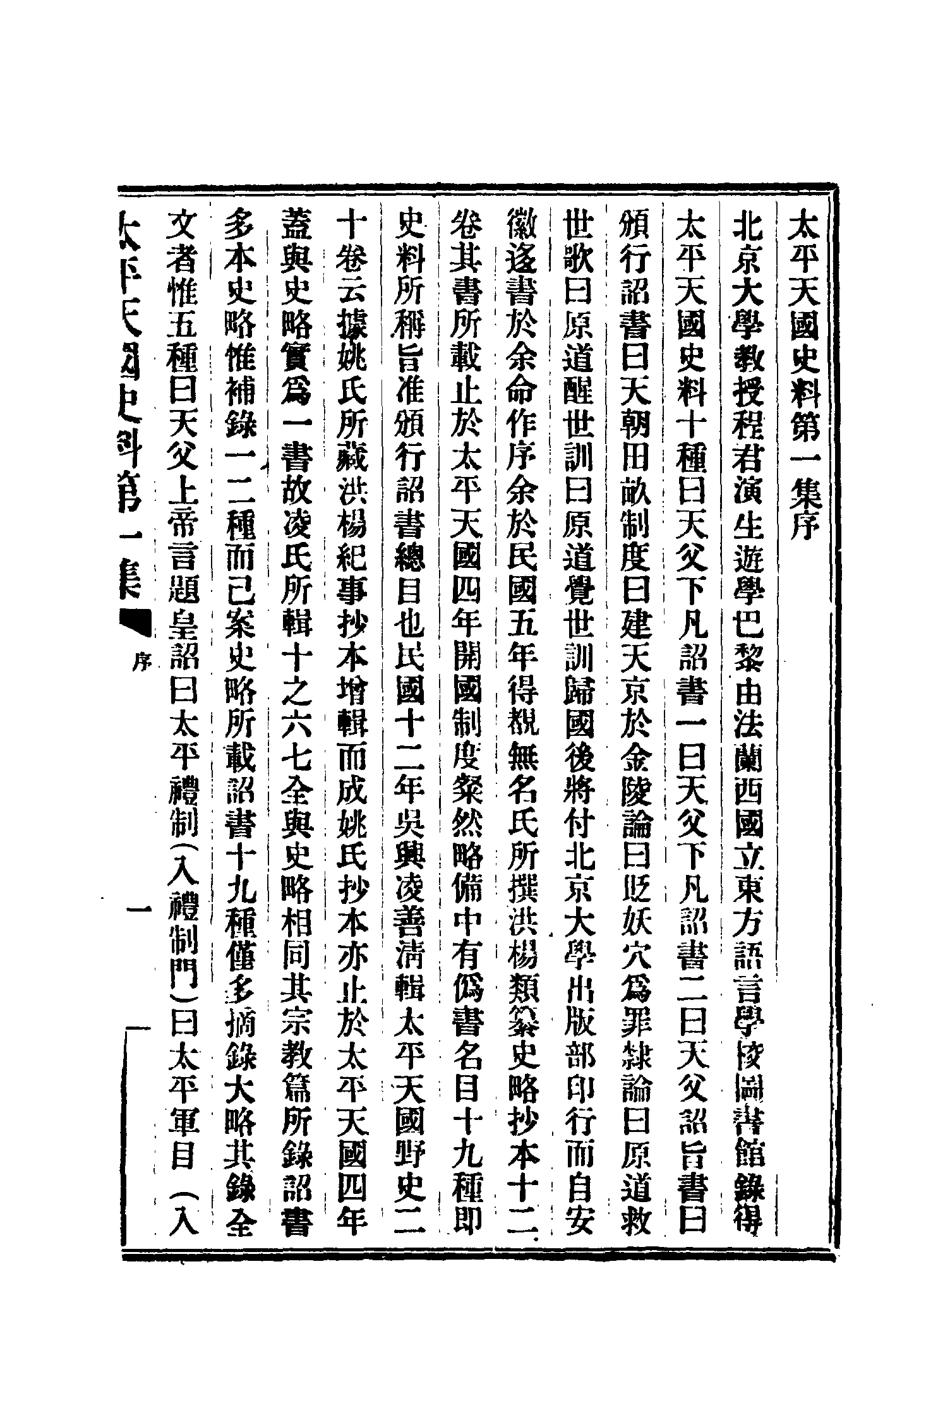 太平天國史料第一集序
北京大學教授程君演生遊學巴黎由法蘭西國立東方語言學校圖書館錄得
太平天國史料十種曰天父下凡詔書一曰天父下凡詔書二曰天父詔旨書曰
頒行詔書曰天朝田畝制度曰建天京於金陵論曰貶妖穴爲罪隸論曰原道救
世歌曰原道醒世訓曰原道覺世訓歸國後將付北京大學出版部印行而自安
徽迻書於余命作序余於民國五年得覩無名氏所撰洪楊類纂史略抄本十二
卷其書所載止於太平天國四年開國制度粲然略備中有僞書名目十九種即
史料所稱旨准頒行詔書總目也民國十二年吳興凌善淸輯太平天國野史二
十卷云據姚氏所藏洪楊紀事抄本增輯而成姚氏抄本亦止於太平天國四年
蓋與史略實爲一書故凌氏所輯十之六七全與史略相同其宗教篇所錄詔書
多本史略惟補錄一二種而已案史略所載詔書十九種僅多摘錄大略其錄全
文者惟五種曰天父上帝言題皇詔曰太平禮制(入禮制門)曰太平軍目(入
太平天國史料第一集 序 一